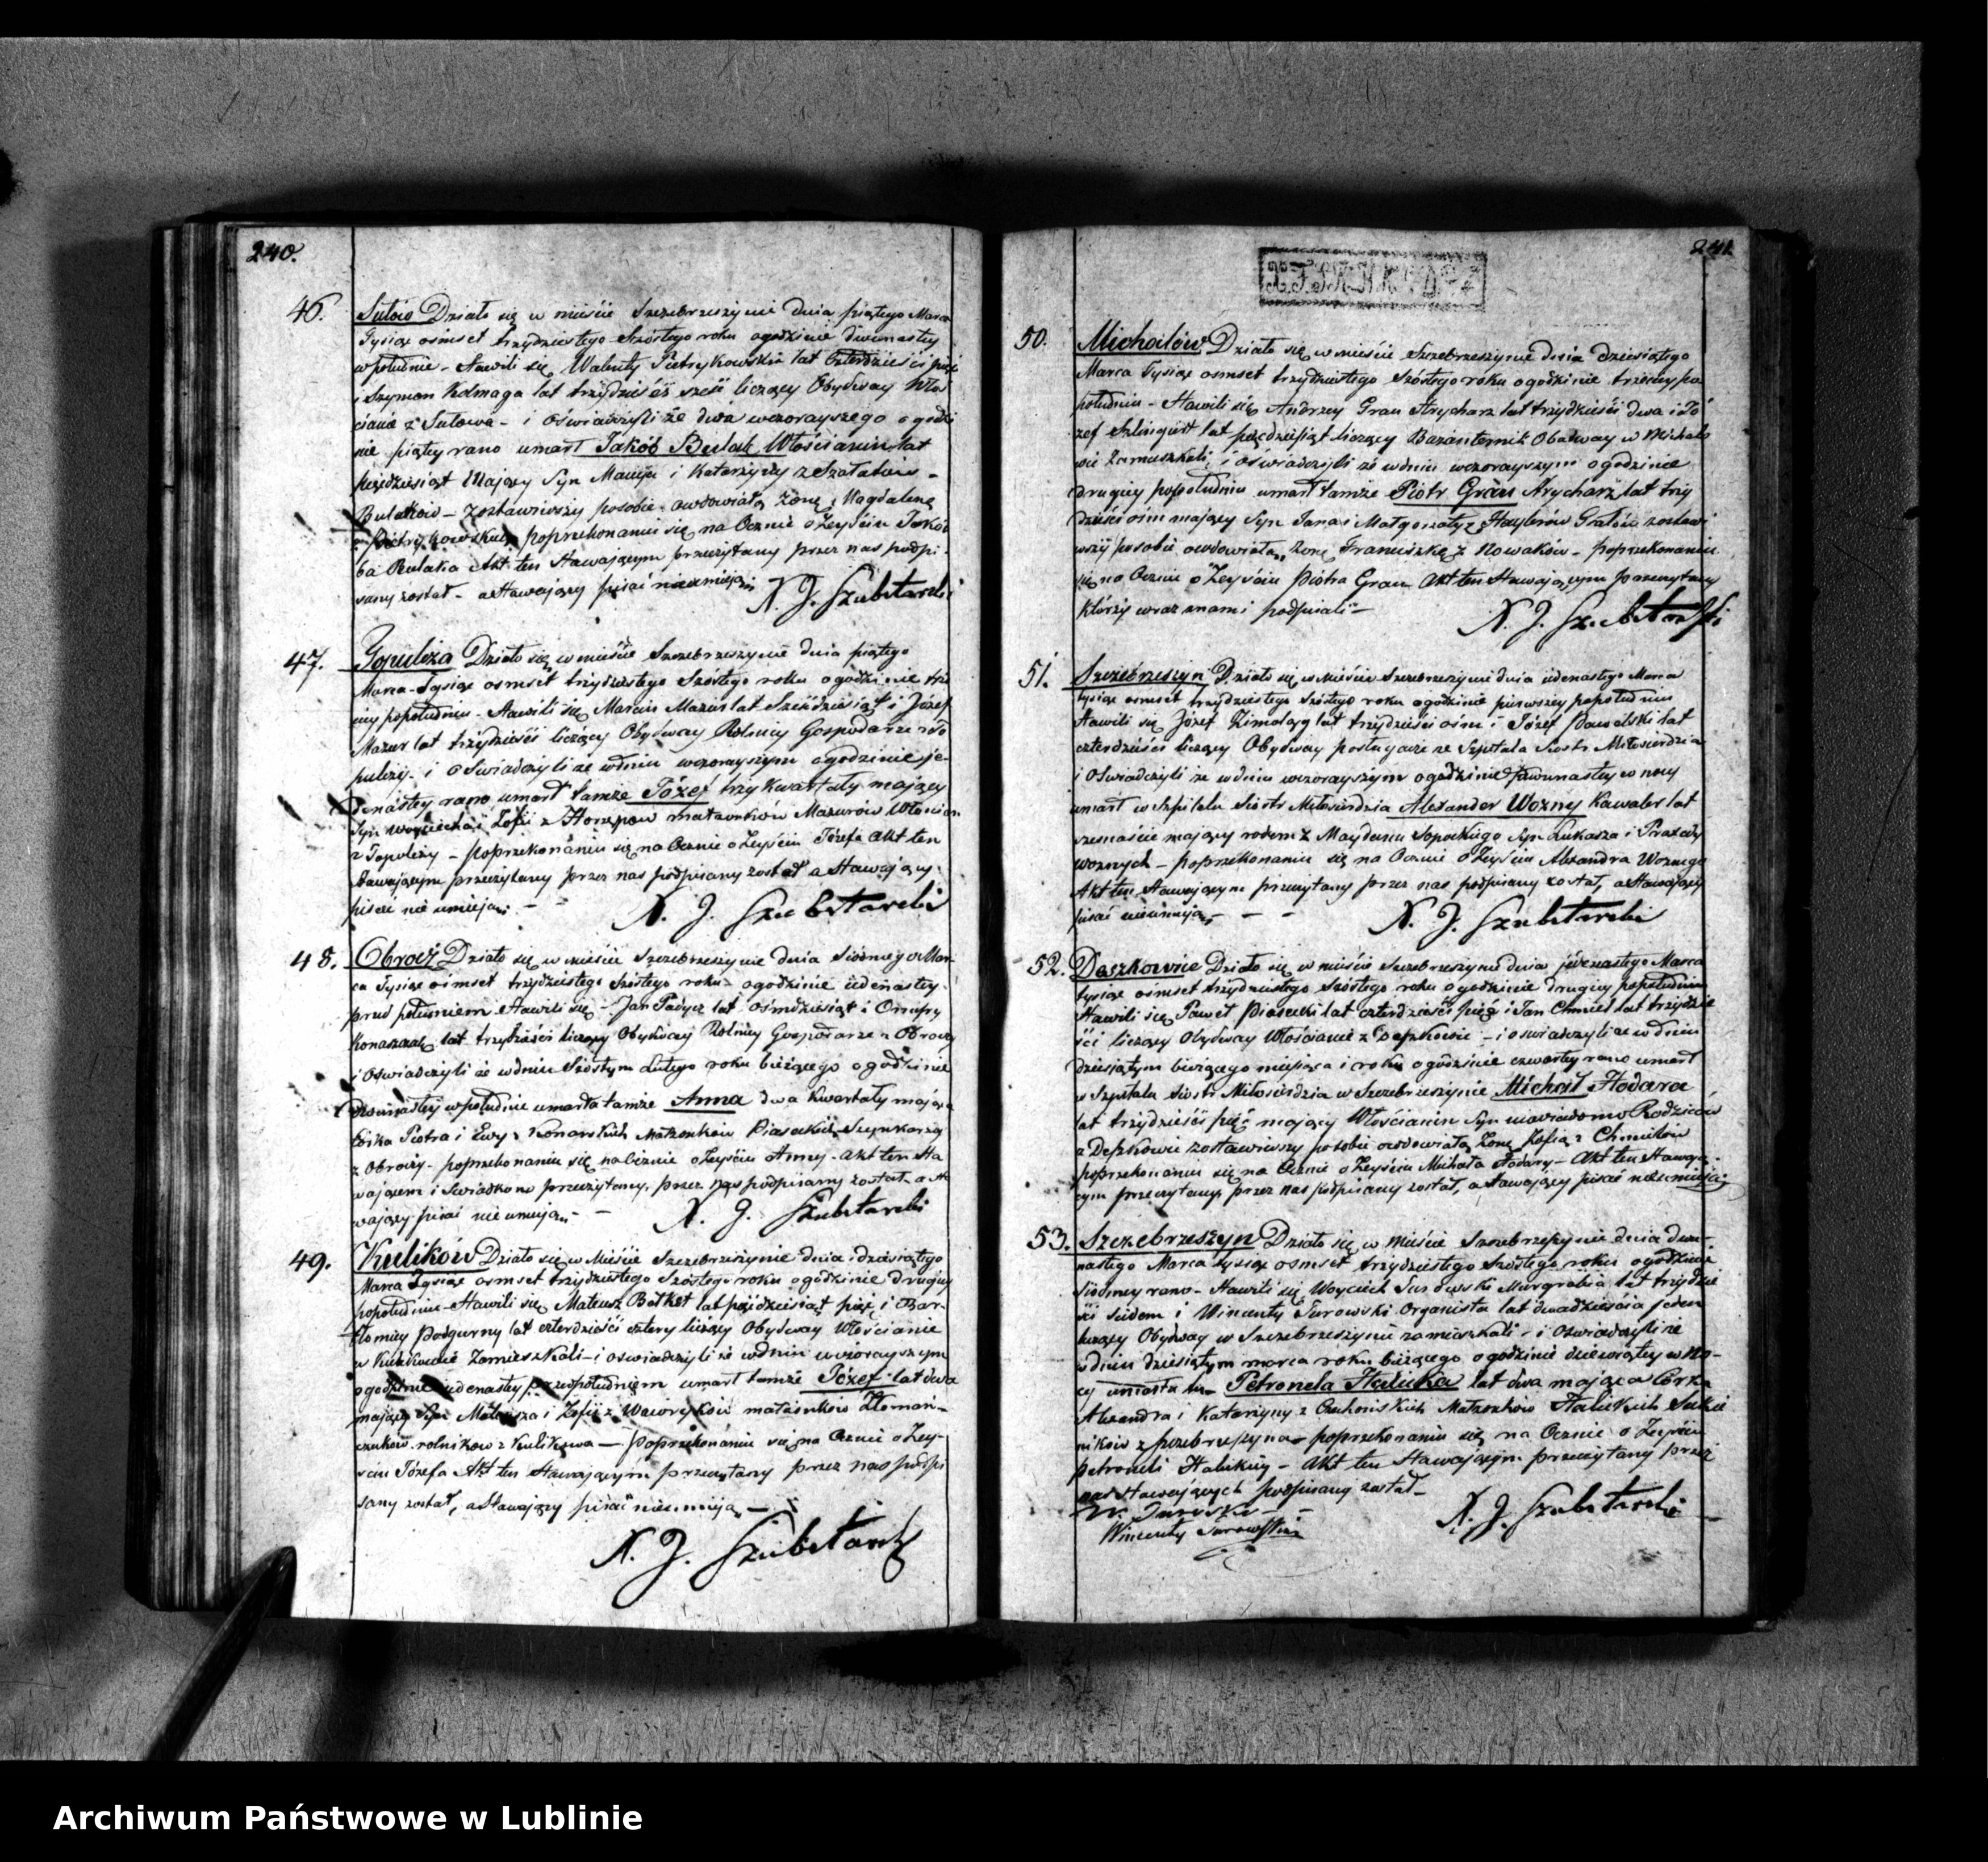 240.
46. Sułów Działo się w mieście Szczebrzeszynie dnia piątego Marca
Tysiąc ośmset trzydziestego Szóstego roku ogodzinie dwunastey
wpołudnie - Stawili się Walenty Pietrykowski lat czterdzieści pięć
i Szymon Kolmaga lat trzydzieści sześć liczący Obydway Wło
ścianie z Sułowa - i Oświadczyli że dnia wczorayszego o godzi
nie piątey rano umarł Jakób Bulak Włościanin lat
pięćdziesiąt Mający Syn Macieja i Katarzyny z
Bulaków - zostawiwszy posobie owdowiałą Żonę Magdalenę
z Pietrykowskich poprzekonaniu się na Ocznie o Zeyściu Jakó
ba Bulaka Akt ten Stawającym przeczytany przez nas podpi-
sany został - a Stawający pisać nieumieją
N. J. Szubstarski
47. Topulcza Działo się w mieście Szczebrzeszynie dnia piątego
Marca Tysiąc ośmset trzydziestego Szóstego roku ogodzinie trze
ciey popołudniu - Stawili się Marcin Mazur lat Sześdziesiąt i Józef
Mazur lat trzydzieści liczący Obydway Rolnicy Gospodarze w To
pulczy - i Oświadczyli że wdniu wczorayszym ogodzinie je-
denastey rano umarł tamże Józef trzy kwartały mający
Syn Woyciecha i Zofii z małżonków Mazurów Włościan
z Topulczy - poprzekonaniu się na Ocznie o Zeyściu Józefa Akt ten
Stawającym przeczytany przez nas podpisany został a Stawający
pisać nie umieją -
N. J. Szubstarski
48. Obrocz Działo się w mieście Szczebrzeszynie dnia Siódmego Mar-
ca Tysiąc ośmset trzydziestego Szóstego roku ogodzinie iedenastey
przed południem Stawili się - Jan lat Ośmdziesiąt i Onufry
lat trzydzieści liczący Obydway Rolnicy Gospodarze z Obroczy
i Oświadczyli że wdniu Szóstym Lutego roku bieżącego ogodzinie
dwunastey wpołudnie umarła tamże Anna dwa kwartały mająca
Córka Piotra i Ewy z Konarskich Małżonków Piaseckich
z Obroczy - poprzekonaniu się naOcznie o Zeyściu Anny - Akt ten Sta
wającem i Swiadkomo przeczytany, przez nas podpisany został - a St
wający pisać nie umieją -
N. J. Szubstarski
49. Kulików Działo się w Mieście Szczebrzeszynie dnia dziesiątego
Marca Tysiąc ośmset trzydziestego Szóstego roku ogodzinie drugiey
popołudniu - Stawili się Mateusz lat pięćdziesiąt pięć i Bar-
tłomiey Podgurny lat czterdzieści cztery liczący Obydway Włościanie
w Kulikowie Zamieszkali - i oswiadczyli że wdniu wczorayszym
ogodzinie iedenastey przedpołudniem umarł tamże Józef lat dwa
mający Syn Mateusza i Zofii z Wawryków małżonków
rolników z Kulikowa - Poprzekonaniu się na Ocznie o Zey-
ściu Józefa Akt ten Stawającym przeczytany przez nas podpi
sany został, a Stawający pisać nieumieją -
N. J. Szubstarski
241
50. Michalów Działo się w mieście Szczebrzeszynie dnia dziesiątego
Marca Tysiąc ośmset trzydziestego Szóstego roku ogodzinie trzeciey po
południu - Stawili się Andrzey Grau Strycharz lat trzydzieści dwa i Jó
zef lat pięćdziesiąt liczący Bażanternik Obadway w Michalo
wie Zamieszkali, i oświadczyli że wdniu wczorayszym ogodzinie
drugiey popołudniu umarł tamże Piotr Grau Strycharz lat trzy
dzieści ośm mający Syn Jana i Małgorzaty z zostawi
wszy posobie owdowiałą Żonę Franciszkę z Nowaków - poprzekonaniu
się na Ocznie o Zeyściu Piotra Grau Akt ten Stawającym przeczytany
którzy wraz z nami podpisali -
N. J. Szubstarski
51. Szczebrzeszyn Działo się w mieście Szczebrzeszynie dnia iedenastego Marca
tysiąc ośmset trzydziestego Szóstego roku ogodzinie pierwszey popołudniu
Stawili się Józef Zimoląg lat trzydzieści ośm i Józef lat
czterdzieści liczący Obydway posługacze ze Szpitala Siostr Miłosierdzia
i Oświadczyli że wdniu wczorayszym ogodzinie dwunastey w nocy
umarł w Szpitalu Siostr Miłosierdzia Alexander Wozny Kawaler lat
szesnaście mający rodem z Maydanu Sopockiego Syn Łukasza i
Woznych - poprzekonaniu się na Ocznie o Zeyściu Alexandra Woznego
Akt ten Stawającym przeczytany przez nas podpisany został, a Stawający
pisać nieumieją -
N. J. Szubstarski
52. Deszkowice Działo się w mieście Szczebrzeszynie dnia jedenastego Marca
tysiąc ośmset trzydziestego Szóstego roku ogodzinie drugiey popołudniu
Stawili się Paweł Piasecki lat czterdzieści pięć i Jan Chmiel lat trzydzie
ści liczący Obydway Włościanie z - i oswiadczyli że wdniu
dziesiątym bieżącego miesiąca i roku ogodzinie czwartey rano umarł
w Szpitalu Siostr Miłosierdzia w Szczebrzeszynie Michał Hodara
lat trzydzieści pięć mający Włościanin Syn niewiadomo Rodziców
z zostawiwszy posobie owdowiałą Żonę Zofią z Chmielów
poprzekonaniu się na Ocznie o Zeyściu Michała Hodary - Akt ten Stawają
cym przeczytany przez nas podpisany został, a Stawający pisać nieumieją
53. Szczebrzeszyn Działo się w mieście Szczebrzeszynie dnia dwu-
nastego Marca tysiąc ośmset trzydziestego Szóstego roku ogodzinie
Siódmey rano - Stawili się Woyciech Murgrabia lat trzydzie
ści siedem i Wincenty Turowski Organista lat dwadzieścia jeden
liczący Obydway w Szczebrzeszynie zamieszkali - i Oświadczyli że
wdniu dziesiątym marca roku bieżącego ogodzinie dziewiątey w No-
cy umarła tu Petronela Halicka lat dwa mająca Córka
Alexandra i Katarzyny z Małżonków Halickich Sukien
ników z Szczebrzeszyna - poprzekonaniu się na Ocznie o Zeyściu
Petroneli Halickiey - Akt ten Stawającym przeczytany przez
nas Stawających podpisany został -
Wincenty Turowski
N. J. Szubstarski
Archiwum Państwowe w Lublinie